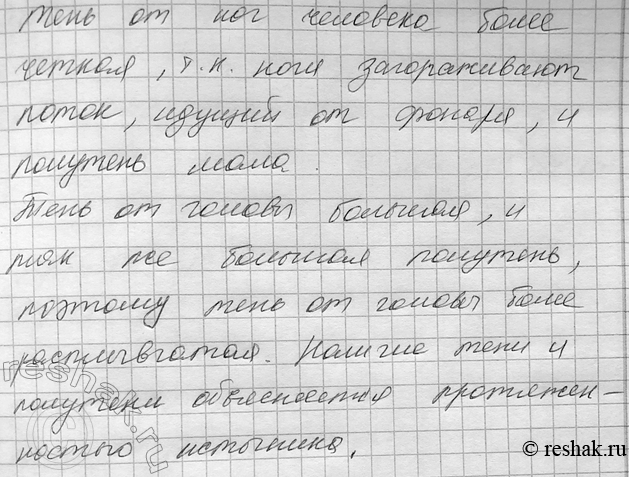 Тень от ног человека более
четкая, т.к. ноги загораживают
поток, идущий от фонаря, и
полутень мала.
Тень от головы большая, и
так же большая полутень,
поэтому тень от головы более
расплывчатая. Наличие тени и
полутени объясняется протяжен-
ностью источника.
reshak.ru
© reshak.ru